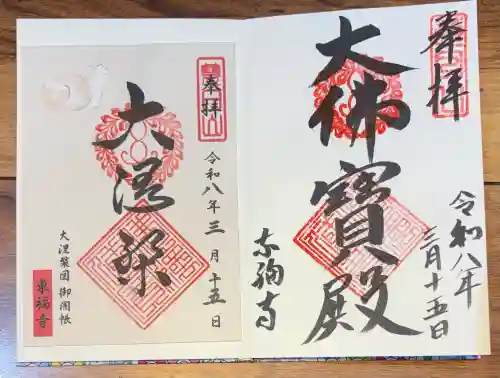 奉拝
大佛寶殿
令和八年
三月十五日
東福寺
奉拝
令和八年三月十五日
大涅槃
大涅槃図 御開帳
東福寺